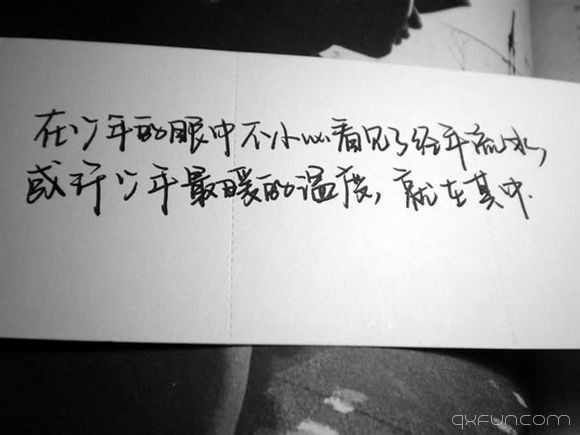 在少年的眼中不小心看见了经年流水,
或许少年最暖的温度,就在其中.
qxfun.com